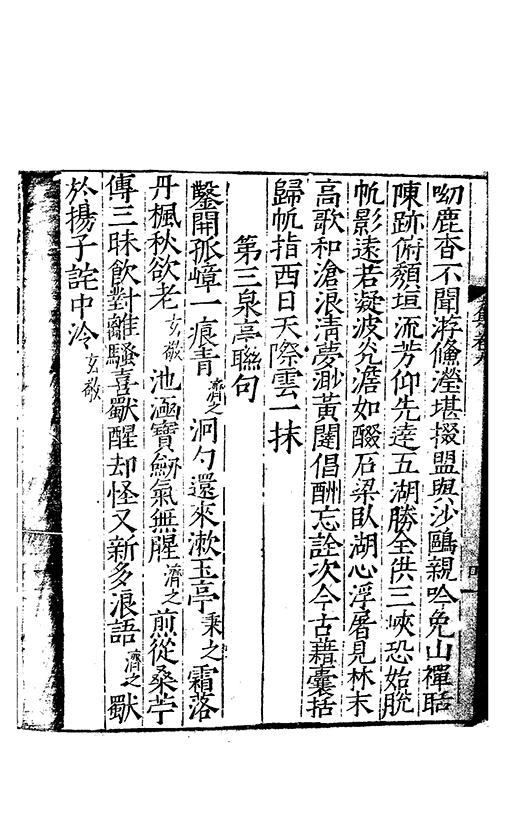 呦鹿杳不聞游鯈瀅堪掇盟與沙鷗親吟免山禪聒
陳跡俯頽垣流芳仰先達五湖勝全供三峽恐始脫
帆影遠若凝波光澹如醱石梁臥湖心浮屠見林末
高歌和滄浪清夢渺黃閮倡酬忘詮次今古藉囊括
歸帆指西日天際雲一抹
第三泉亭聯句
鑿開孤嶂一痕青濟之泂勺還來漱玉亭秉之霜落
丹楓秋欲老玄敬池涵寶氣無腥濟之煎從桑苧
傳三昧飲對離騷喜獸醒却怪又新多浪語濟之獸
於揚子詫中泠玄敬